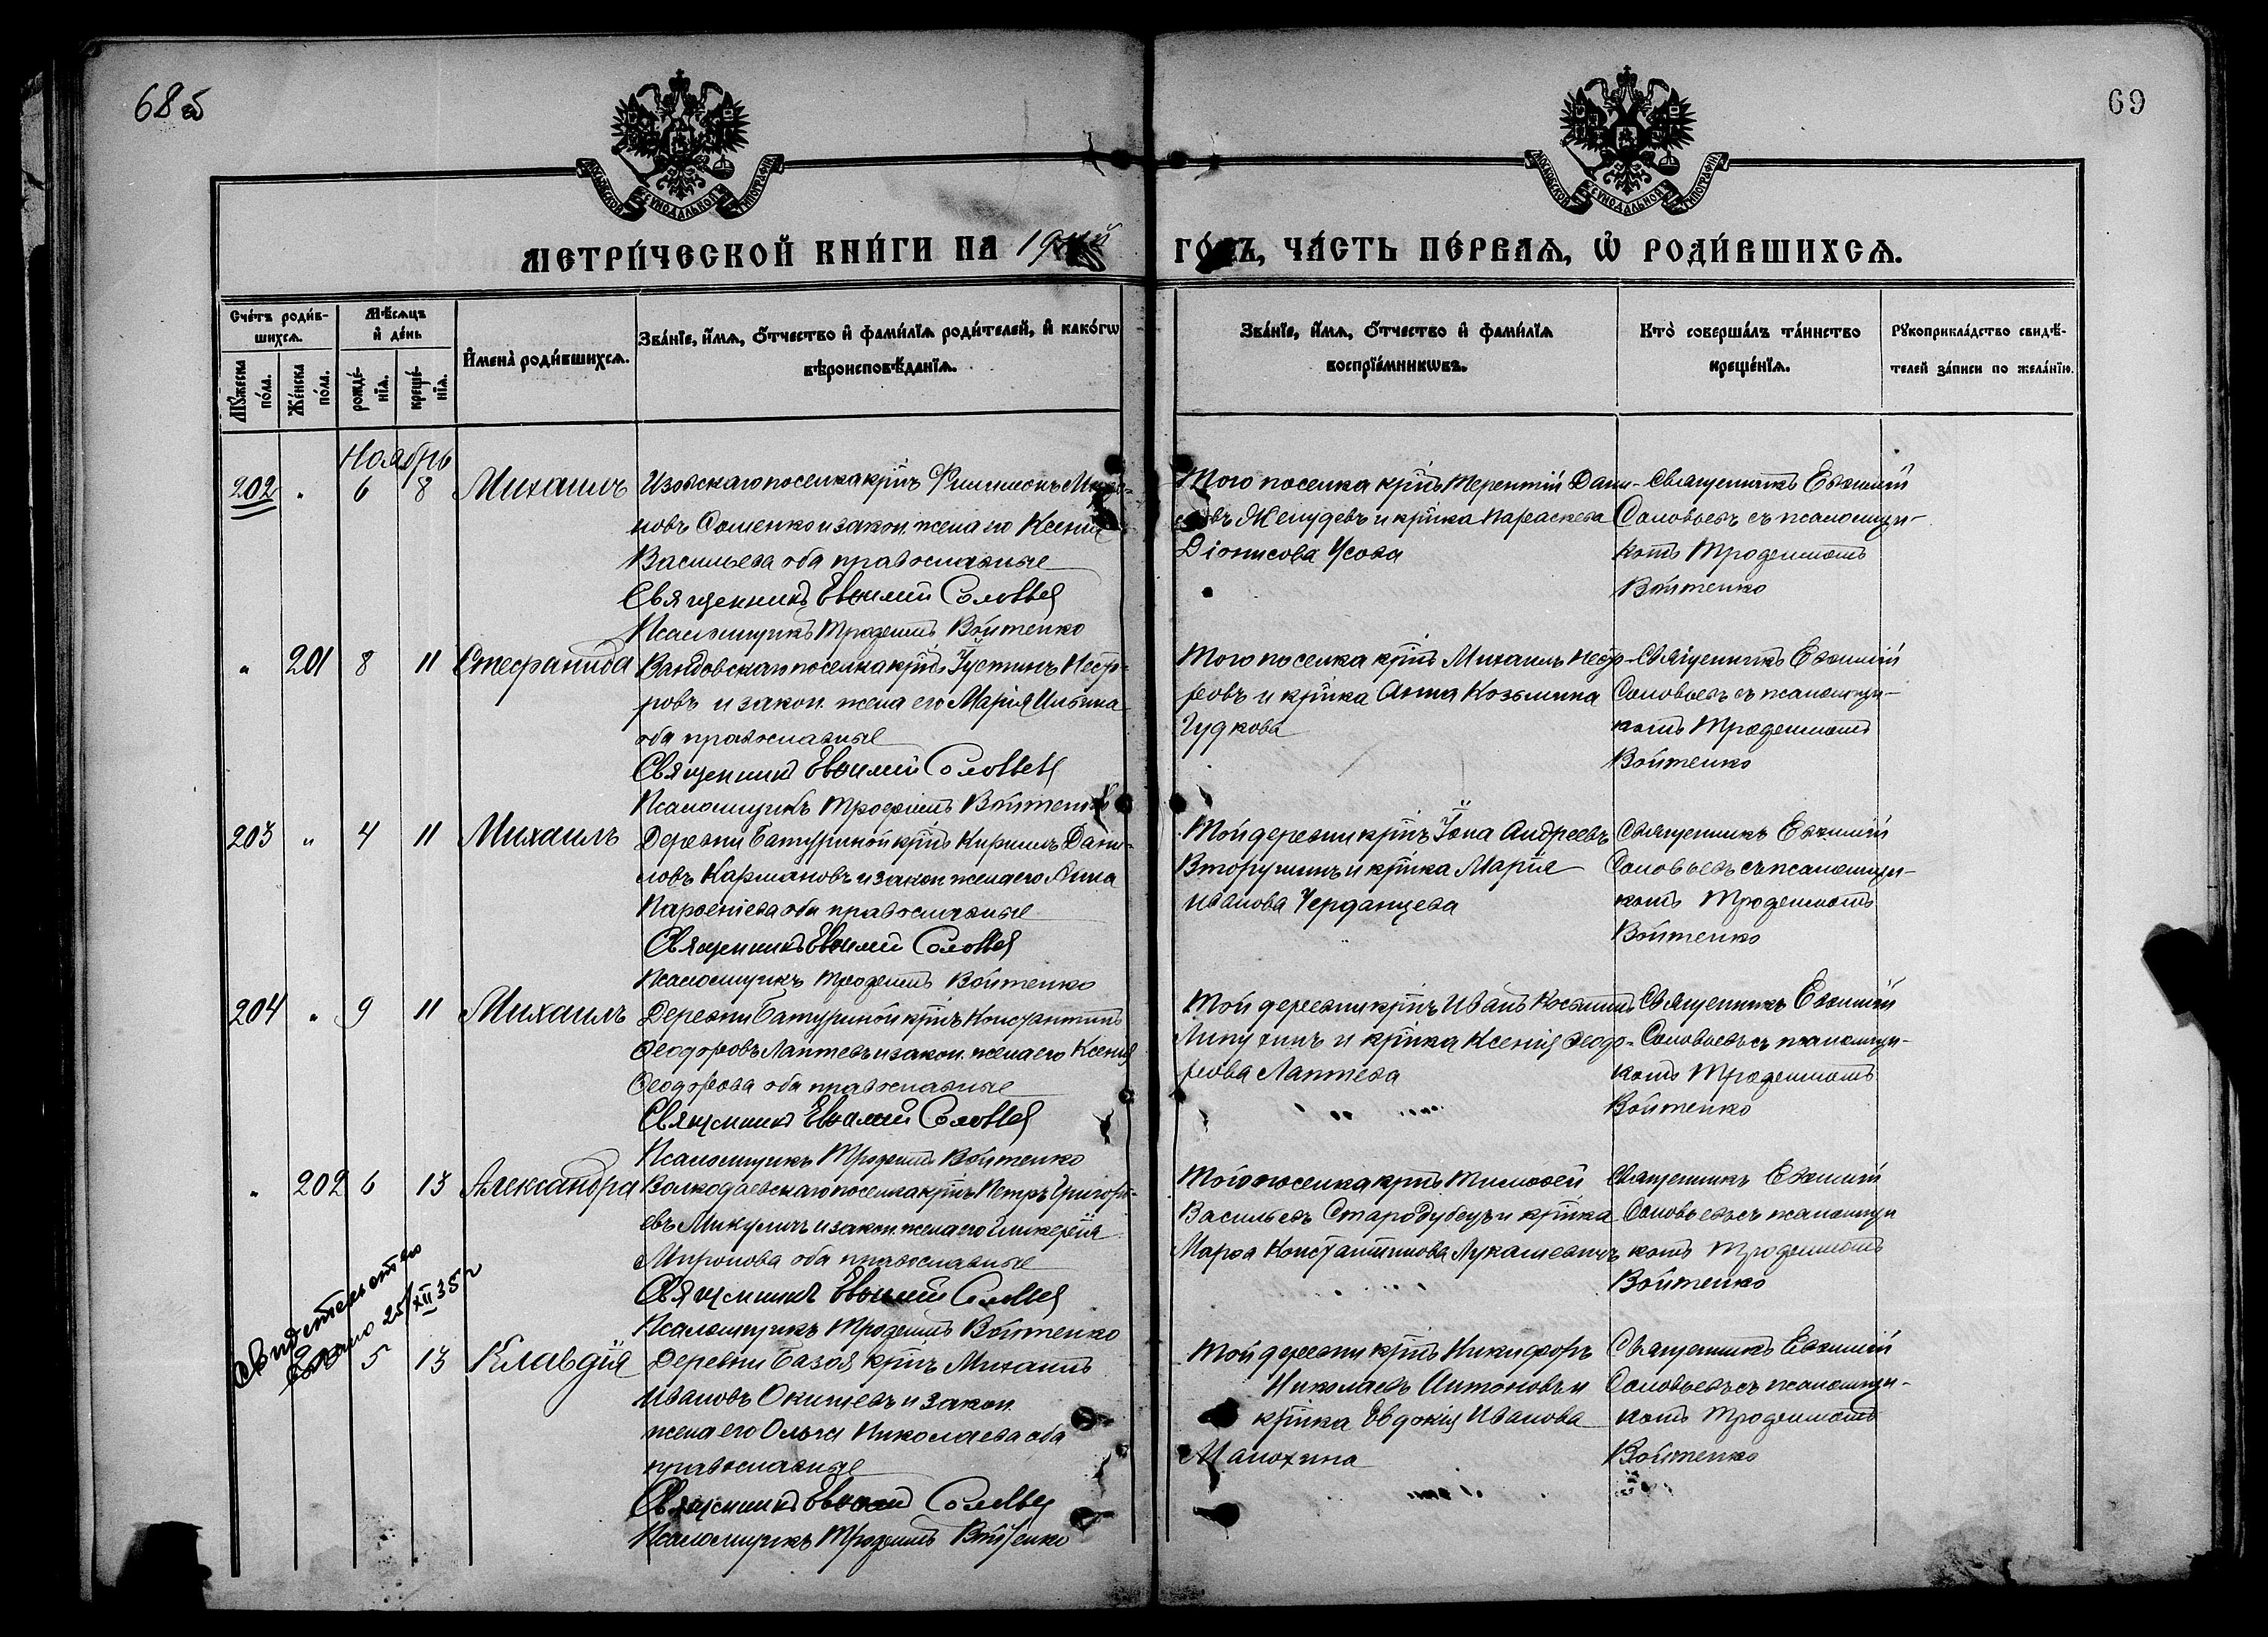 68 об
69
МОСКОВСКОЙ СѴНОДАЛЬНОЙ ТИПОГРАФІИ
МОСКОВСКОЙ СѴНОДАЛЬНОЙ ТИПОГРАФІИ
МЕТРИ́ЧЕСКОЙ КНИ́ГИ НА 19
ГО́ДЪ, ЧА́СТЬ ПЕ́РВАѦ, Ѡ҆ РОДИ́ВШИХСѦ.
Сче́тъ роди́в-
шихсѧ.
Мꙋ́жеска по́ла.
Же́нска по́ла.
Мѣ́сѧцъ
и҆ де́нь
рожде́-
нїѧ.
креще́-
нїѧ.
И҆мена̀ роди́вшихсѧ.
Зва́нїе, и҆́мѧ, ѻ҆́тчество и҆ фами́лїѧ роди́телей, и҆ како́гѡ
вѣроисповѣ́данїѧ.
Зва́нїе, и҆́мѧ, ѻ҆́тчество и҆ фами́лїѧ
воспрїе́мникѡвъ.
Кто̀ соверша́лъ та́инство
креще́нїѧ.
Рꙋкоприкла́дство свидѣ́-
телей за́писи по жела́нїю.
Ноябрь
202 " 6 8 Михаилъ
Изовскаго поселка кр҃нъ Филимонъ
новъ Соменко и закон. жена его Ксенія
Васильева оба православные
Священникъ Евѳимій Соловьев
Псаломщикъ Трофимъ Войтенко
Того поселка кр҃нъ Терентій Дани-
ловъ Желудевъ и кр҃нка Параскева
Діонисова Усова
Священникъ Евѳимій
Соловьевъ съ псаломщи-
комъ Трофимомъ
Войтенко
" 201 8 11 Стефанида
поселка кр҃нъ Іустинъ Несто-
ровъ и закон. жена его Марія Ильина
оба православные
Священникъ Евѳимій Соловьев
Псаломщикъ Трофимъ Войтенко
Того поселка кр҃нъ Михаилъ
ровъ и кр҃нка Анна Козьмина
Гудкова
Священникъ Евѳимій
Соловьевъ съ псаломщи-
комъ Трофимомъ
Войтенко
203 " 4 11 Михаилъ
Деревни Батуриной кр҃нъ Кириллъ Дани-
ловъ Кармановъ и закон жена его Анна
Парѳеніева оба православные
Священникъ Евѳимій Соловьев
Псаломщикъ Трофимъ Войтенко
Той деревни кр҃нъ Іона Андреевъ
Вторушинъ и кр҃нка Марія
Иванова Черданцева
Священникъ Евѳимій
Соловьевъ съ псаломщи-
комъ Трофимомъ
Войтенко
204 " 9 11 Михаилъ
Деревни Батуриной кр҃нъ Константинъ
Ѳеодоровъ Лаптевъ и закон. жена его Ксенія
Ѳеодорова оба православные
Священникъ Евѳимій Соловьев
Псаломщикъ Трофимъ Войтенко
Той деревни кр҃нъ Иванъ
Липухинъ и кр҃нка Ксенія Ѳеодо-
рова Лаптева
Священникъ Евѳимій
Соловьевъ съ псаломщи-
комъ Трофимомъ
Войтенко
" 202 6 13 Александра
Волкодаевскаго поселка кр҃нъ Петръ Григорі-
евъ Микуличъ и закон. жена его Гликерія
Миронова оба православные
Священникъ Евѳимій Соловьев
Псаломщикъ Трофимъ Войтенко
Того поселка кр҃нъ Тимоѳей
Васильевъ Стародубецъ и кр҃нка
Марѳа Константинова Лукашевичъ
Священникъ Евѳимій
Соловьевъ съ псаломщи
комъ Трофимомъ
Войтенко
свидетельство
25/XII 35 г
5 13 Клавдія
Деревни Базоя кр҃нъ Михаилъ
Ивановъ Окишевъ и закон.
жена его Ольга Николаева оба
православные
Священникъ Евѳимій Соловьев
Псаломщикъ Трофимъ Войтенко
Той деревни кр҃нъ Никифоръ
Николаевъ Антоновъ и
кр҃нка Евдокія Иванова
Малохина
Священникъ Евѳимій
Соловьевъ съ псаломщи-
комъ Трофимомъ
Войтенко